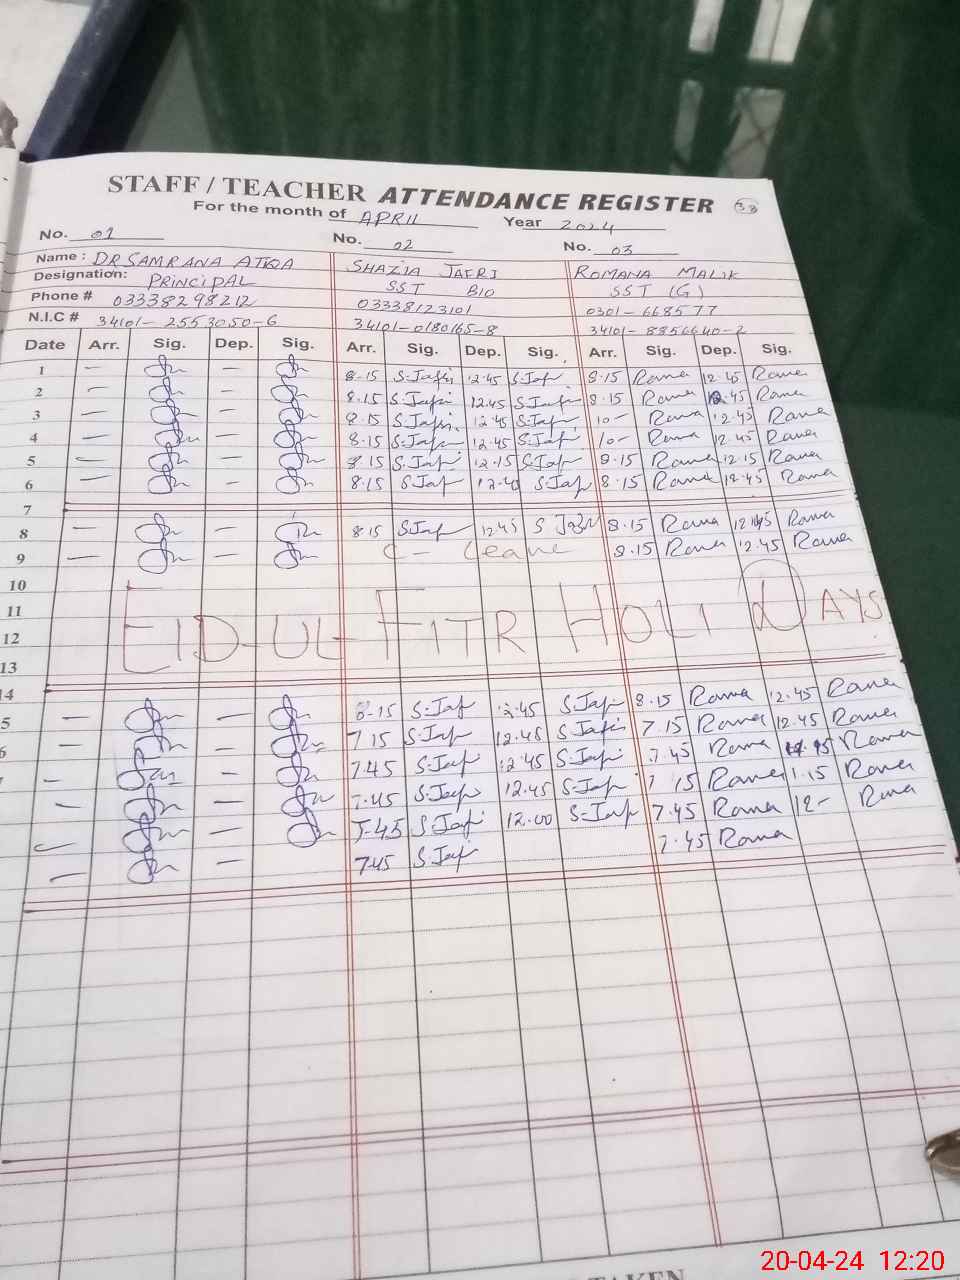 STAFF / TEACHER ATTENDANCE REGISTER 33
For the month of APRIL Year 2024
No. 01 No. 02 No. 03
Name : DR SAMRANA ATIQA SHAZIA JAFRI ROMANA MALIK
Designation: PRINCIPAL SST BIO SST (G)
Phone # 03338298212 03338123101 0301-668577
N.I.C # 34101-2553050-6 34101-0180165-8 34101-8856640-2
Date Arr. Sig. Dep. Sig. Arr. Sig. Dep. Sig. Arr. Sig. Dep. Sig.
1 — — 8-15 S.Jafri 12.45 S.Jaf 8.15 Roma 12.45 Roma
2 — — 8.15 S.Jafri 12.45 S.Jafri 8.15 Roma 12.45 Roma
3 — — 8.15 S.Jafri 12.45 S.Jafri 10- Roma 12.45 Roma
4 — — 8.15 S.Jafri 12.45 S.Jafri 10- Roma 12.45 Roma
5 — — 8.15 S.Jaf 12.15 S.Jaf 8.15 Roma 12.15 Roma
6 — — 8.15 S.Jaf S.Jaf 8.15 Roma 12.45 Roma
7
8 — — 8.15 S.Jaf 12.45 S Jafri 8.15 Roma Roma
9 — C - Leave 8.15 Roma 12.45 Roma
10
11 EID-UL-FITR HOLIDAYS
12
13
14
— — 8-15 S.Jaf 12.45 S.Jafri 8.15 Roma 12.45 Roma
5 — — 7.15 S.Jaf 12.45 S.Jafri 7.15 Roma 12.45 Roma
6 — 7.45 S.Jaf 12.45 S.Jafri 7.45 Roma Roma
7 — — 7.45 S.Jaf 12.45 S.Jafri 7.15 Roma 1.15 Roma
— 7.45 S.Jaf 12.00 S.Jaf 7.45 Roma 12- Roma
— — 7.45 S.Jaf 7.45 Roma
TAKEN
20-04-24 12:20